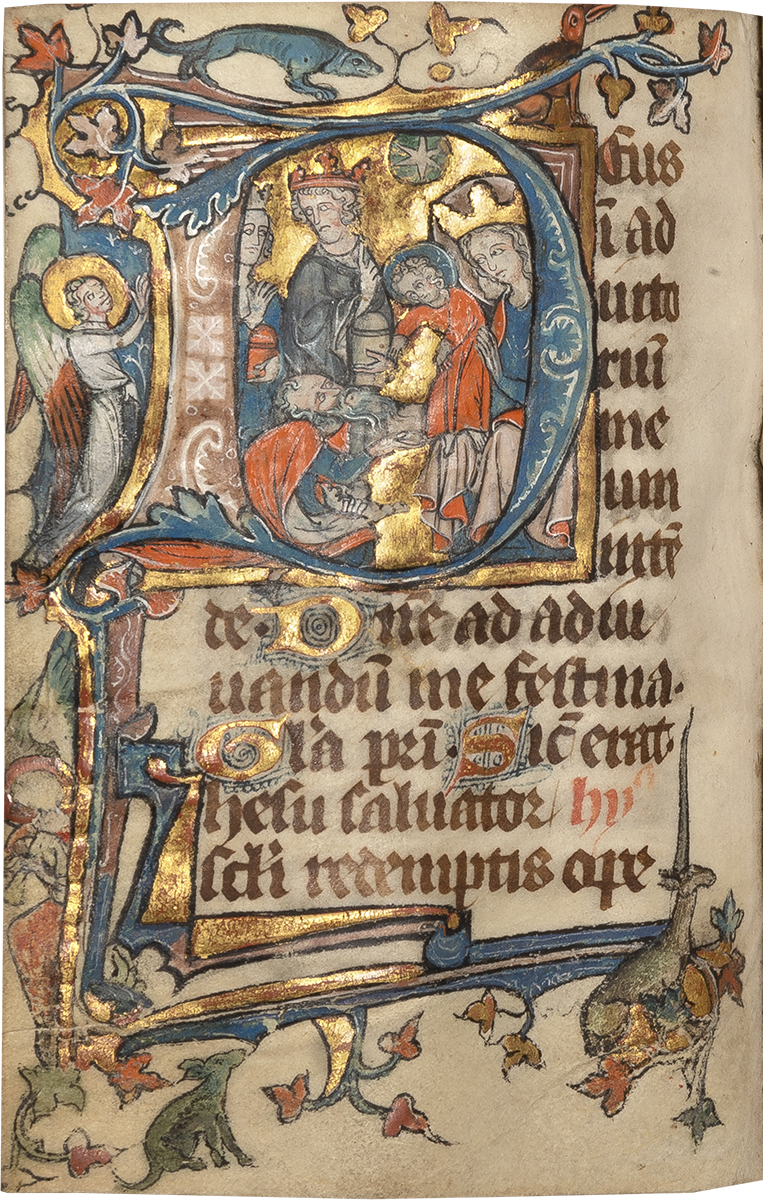 Deus
ī ad
iuto
riū
me
um
intē
de. Dñe ad adiu
uandū me festina.
Gl'a pr̄i. Sic̄ erat.
hesu saluator hy
scl'i redemptis ope